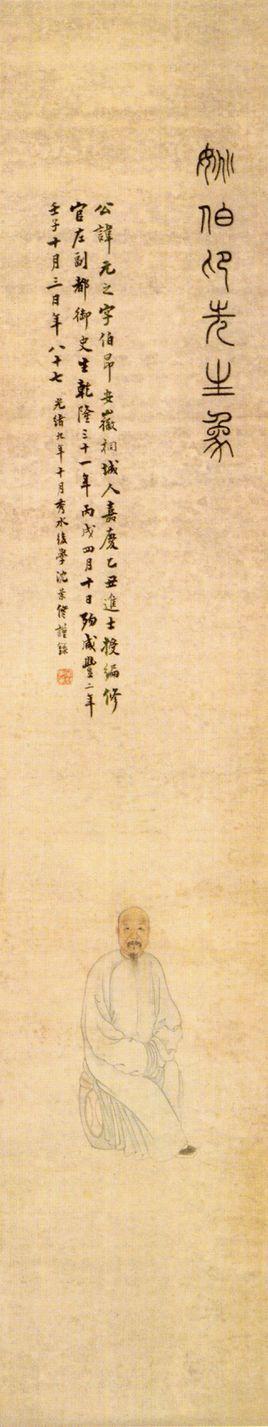 姚伯卬先生象
公諱元之字伯昂安徽桐城人嘉慶乙丑進士授編修
官左副都御史生乾隆三十一年丙戌四月十日殁咸豐二年
壬子十月三日年八十七 光緒九年十月秀水後學沈景修謹錄